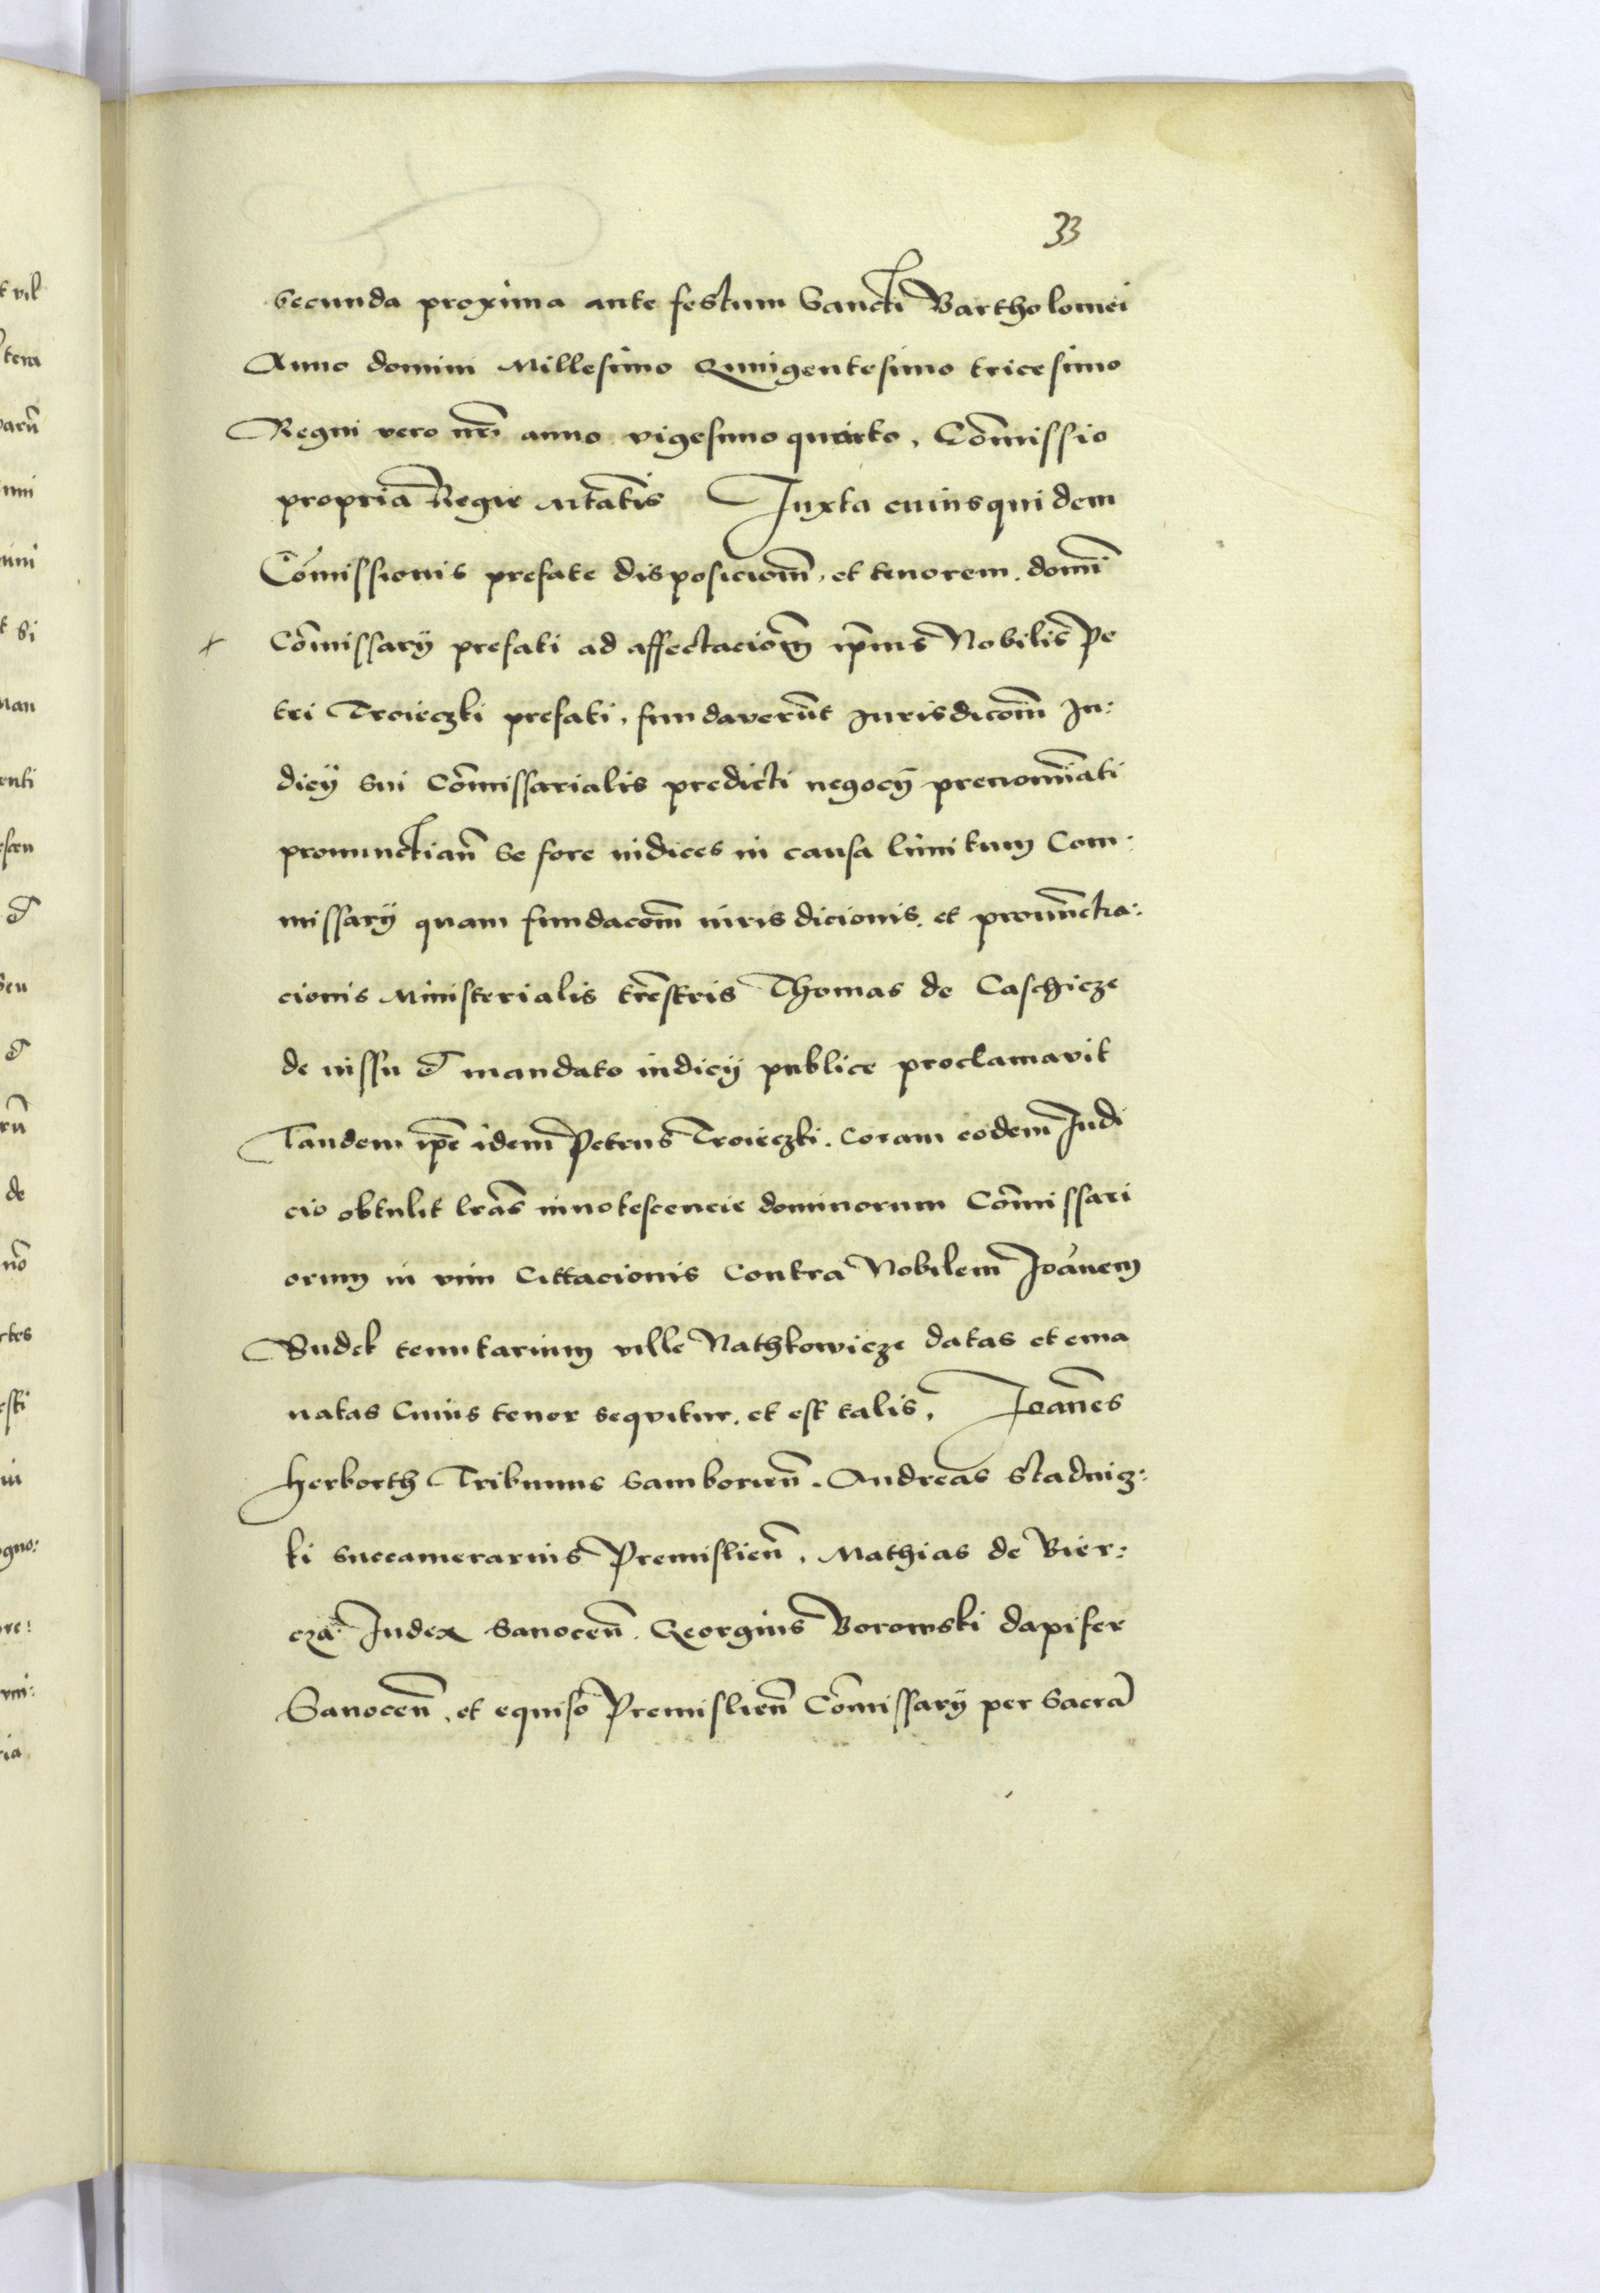 33
Secunda proxima ante festum Sancti Bartholomei
Anno domini Millesimo Quingentesimo tricesimo
Regni vero nr̃i anno vigesimo quarto, Com̃issio
propria Regie M̃tatis Juxta cuiusquidem
Com̃issionis prefate disposiciom̃, et tenorem. domĩ
x Com̃issarÿ prefati ad affectaciom̃ ip̃ius Nobilis Pe
tri Troieczki prefati, fundaverũt Jurisdicom̃ Ju:
dicÿ Sui Com̃issarialis predicti negocÿ prenomĩati
pronunctiañ Se fore iudices in causa limitum Com:
missarÿ quam fundacom̃ iurisdicionis, et pronũctia:
cionis Ministerialis tr̃estris Thomas de Caschicze
de iussu et mandato iudicÿ publice proclamavit
Tandem ip̃e idem Petrus Troieczki. coram eodem Judi
cio obtulit lr̃as innotescencie dominorum Com̃issari
orum in vim Cittacionis Contra Nobilem Joãnem
Budek tenutarium ville Nathkowicze datas et ema
natas Cuius tenor sequitur, et est talis, Joañes
Herborth Tribunus Samborieñ. Andreas Stadnicz:
ki Succamerarius Premislieñ, Mathias de Bier:
cza Judex Sanoceñ. Georgius Borowski dapifer
Sanoceñ, et equiso Premislieñ Com̃issarÿ per Sacrã